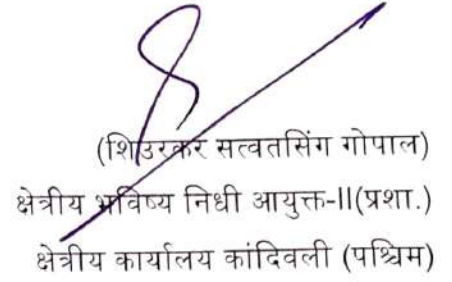 (शिउरकर सत्वतसिंग गोपाल)
क्षेत्रीय भविष्य निधी आयुक्त-II(प्रशा.)
क्षेत्रीय कार्यालय कांदिवली (पश्चिम)